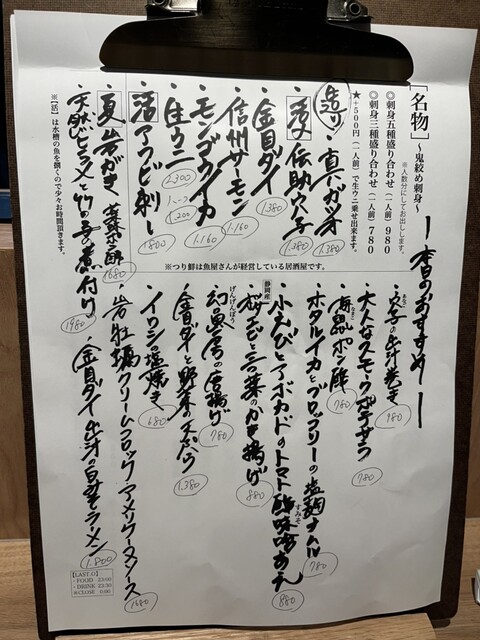 「名物」~鬼絞め刺身~
※人数分にてお出しします。
◎刺身五種盛り合わせ(一人前)980
◎刺身三種盛り合わせ(一人前)780
★+500円(一人前)で生ウニ乗せ出来ます。
造り・真ガツオ 1.380
・活〆伝助穴子 1.380
・金目ダイ 1.380
・信州サーモン 1.160
・モンゴウイカ 1.160
・生ウニ 2.300 ハーフ 1.200
・活アワビ刺し 1800
・夏岩がき 薬味ポン酢 680
・天然ヒラメと竹の子の煮付け 1980
※【活】は水槽の魚を捌くので少々お時間頂きます。
※つり鮮は魚屋さんが経営している居酒屋です。
ー本日のおすすめー
・穴子の出汁巻き 980
あなご
・大人なスモークポテサラ 780
・海鼠ポン酢 780
なまこ
・ホタルイカとブロッコリーの塩麹ナムル 780
・小えびとアボカドのトマト酢味噌あえ 880
すみそ
静岡産
・桜エビと三つ葉のかき揚げ 880
・幻魚の唐揚げ 780
げんげんぼう
・金目ダイと野菜の天ぷら 1.380
・イワシの塩焼き 680
・岩牡蠣クリームコロッケ アメリケーヌソース 1680
・金目ダイ出汁の白醤ラーメン 1.800
【LAST.O】
・FOOD 23:00
・DRINK 23:30
※CLOSE 0:00